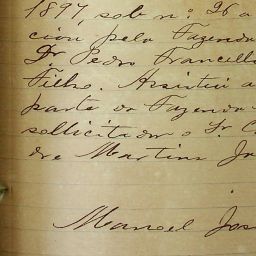 1897, sob nº 26 a
cion pela Fazenda
Dr. Pedro Francelli
Filho. Assistiu a
parte da Fazenda
sollicitador o Sr. C
dre Martins Ja
Manoel Jos